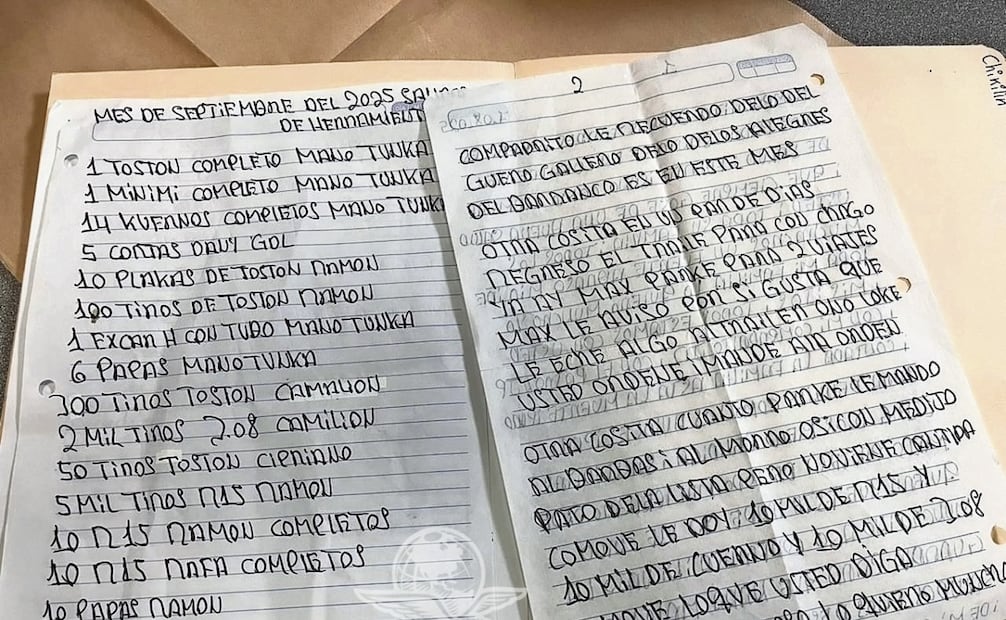 MES DE SEPTIEMBRE DEL 2025
DE HERRAMIENT
1 TOSTON COMPLETO MANO TUNKA
1 MINIMI COMPLETO MANO TUNKA
14 KUERNOS COMPLETOS MANO TUNKA
5 CORTAS DAVY GOL
10 PLAKAS DE TOSTON RAMON
100 TIROS DE TOSTON RAMON
1 EXCAR H CON TUBO MANO TUNKA
6 PAPAS MANO TUNKA
300 TIROS TOSTON CAMALION
2 MIL TIROS 2.08 CAMILION
50 TIROS TOSTON CIPRIANO
5 MIL TIROS R15 RAMON
10 R15 RAMON COMPLETOS
10 R15 RAFA COMPLETOS
10 PAPAS RAMON
2
COMPADRITO LE RECUERDO DELO DEL
GUERO GALLERO DELO DELOS ALEGRES
DEL BARRANCO ES EN ESTE MES
OTRA COSITA EN UN PAR DE DIAS
REGRESO EL TRAILE PARA CON CHAGO
YA AY MAX PARKE PARA 2 VIAJES
MAX LE AVISO POR SI GUSTA QUE
LE ECHE ALGO AL TRAILER ONO LOKE
USTED ORDENE
OTRA COSITA CUANTO PARKE LE MANDO
AL BARBAS I AL MORRO OSICON MEDITO
PATO DELA LISTA PERO NOVIENE CANTIDA
COMOVE LE DOY 10 MIL DE R15 Y
10 MIL DE CUERNO Y 10 MIL DE 2.08
LOQUE USTED DIGA
Chikilin